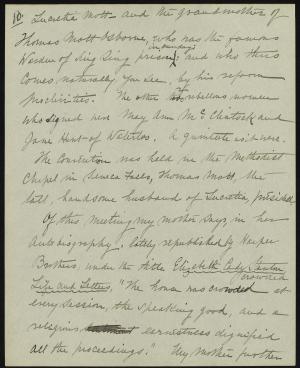 10. Lucretia Mott and the grandmother of
Thomas Mott Osborne, who was the famous
Warden of Sing Sing prison; and who thus
comes naturally, you see, by his reform
proclivities. The other rebellious women
who signed were Mary Ann McClintock and
Jane Hunt of Waterloo. A quintette as it were.
The Convention was held in the Methodist
Chapel in Seneca Falls, Thomas Mott, the
tall, handsome husband of Lucretia, presided.
Of this meeting my mother says, in her
Autobiography, lately republished by Harper
Brothers, under the title Elizabeth Cady Stanton
Life and Letters, "The house was crowded at
every session, the speaking good, and a
religious earnestness dignified
all the proceedings." My mother further